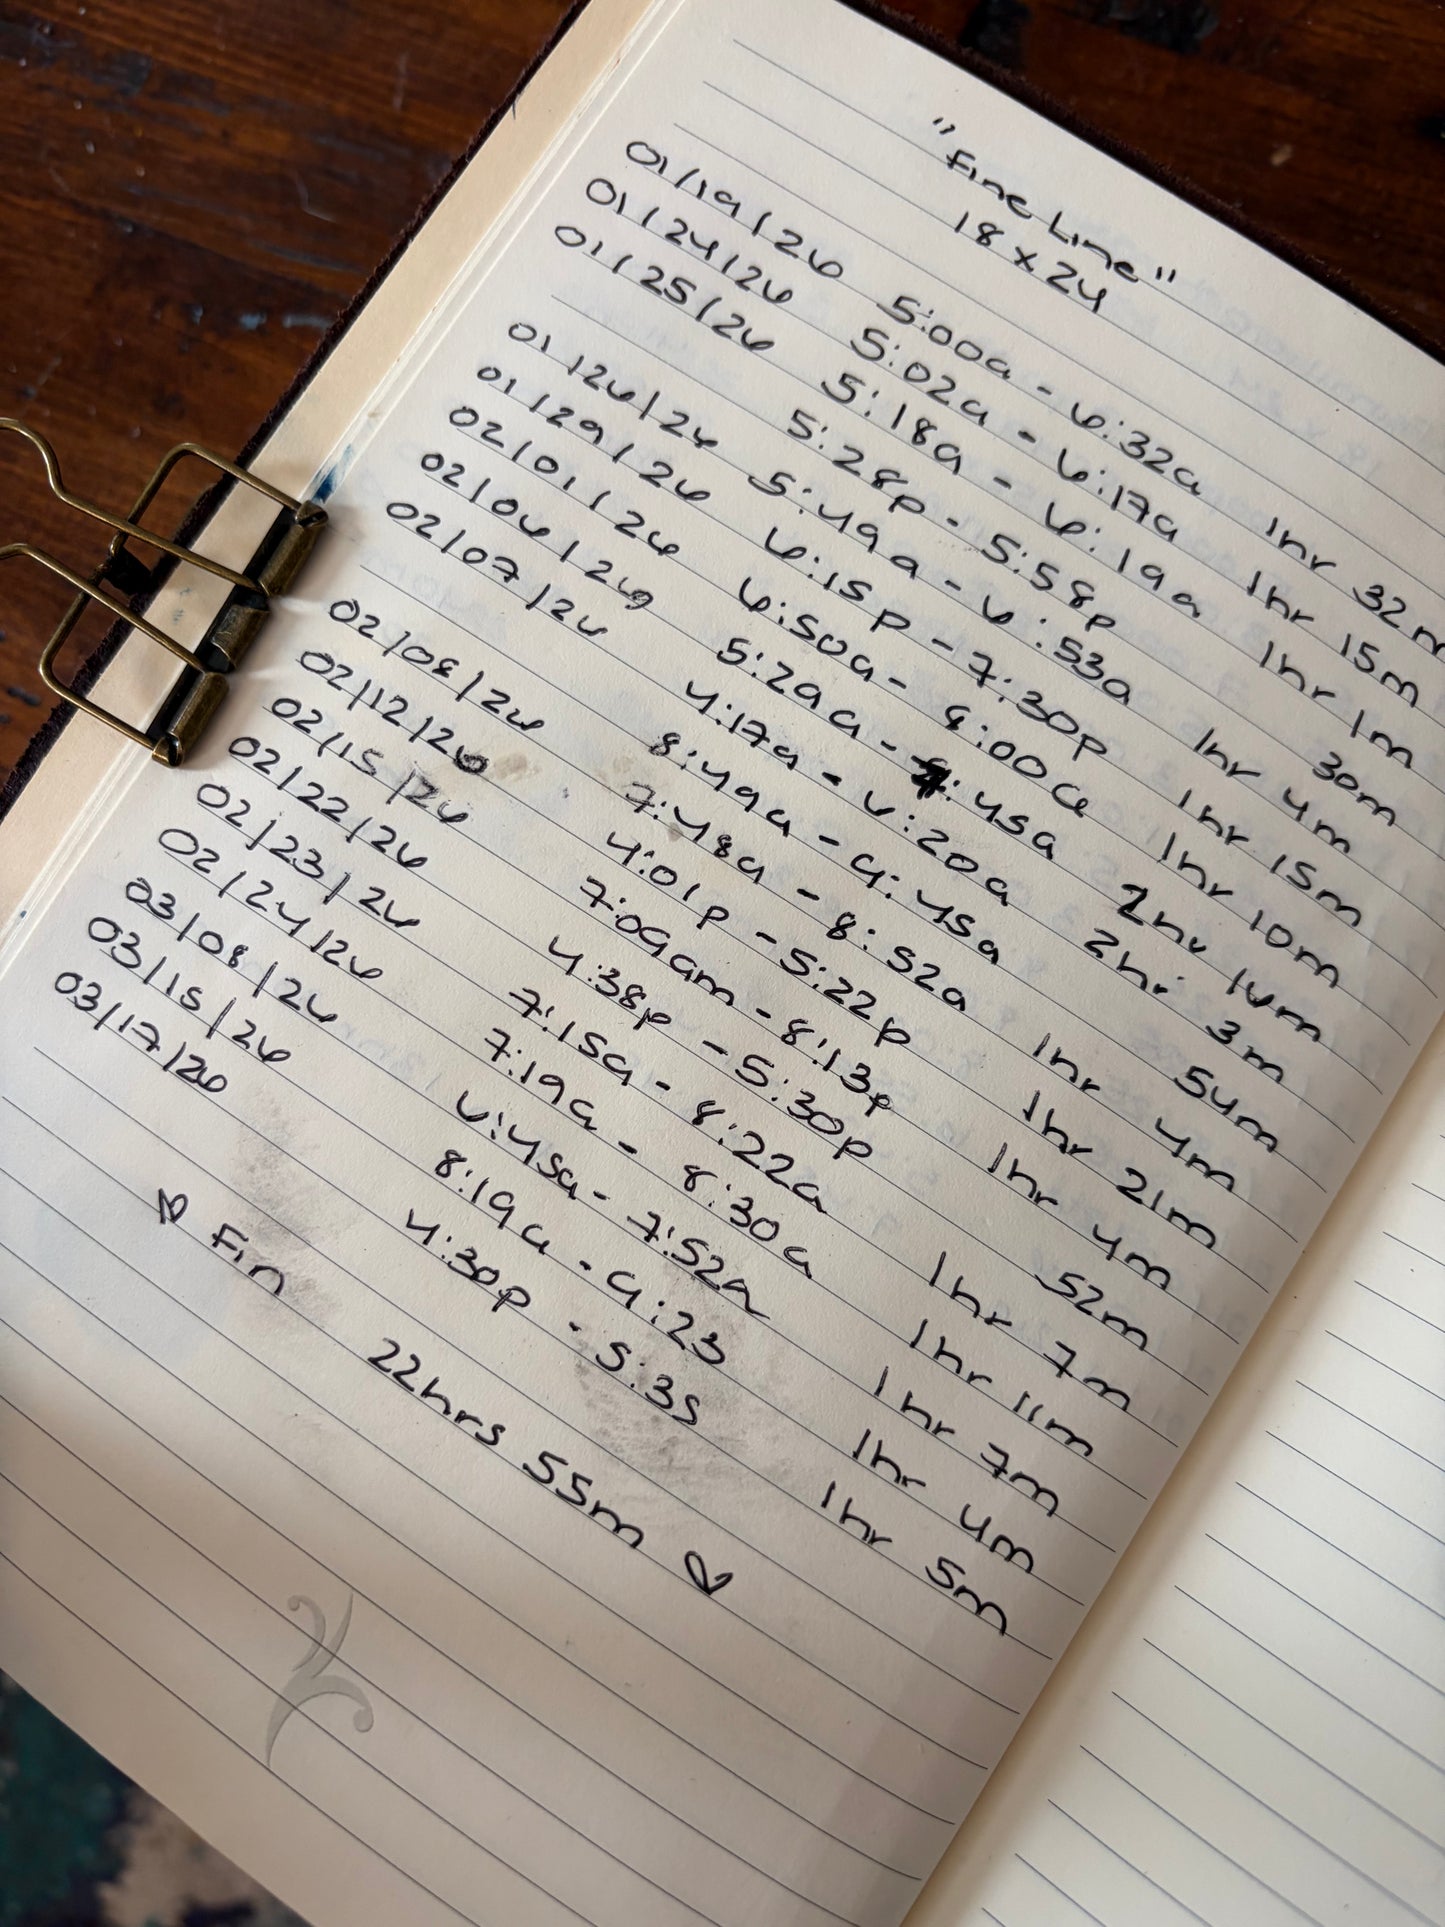 "Fine Line"
18 x 24
01/19/26 5:00a - 6:32a 1hr 32m
01/24/26 5:02a - 6:17a 1hr 15m
01/25/26 5:18a - 6:19a 1hr 1m
5:28p - 5:58p 30m
01/26/26 5:49a - 6:53a 1hr 4m
01/29/26 6:15p - 7:30p 1hr 15m
02/01/26 6:50a - 8:00a 1hr 10m
02/06/26 5:29a - 7:45a 2hr 16m
02/07/26 4:17a - 6:20a 2hr 3m
8:49a - 9:45a 54m
02/08/26 7:48a - 8:52a 1hr 4m
02/12/26 4:01p - 5:22p 1hr 21m
02/15/26 7:09am - 8:13a 1hr 4m
02/22/26 4:38p - 5:30p 52m
02/23/26 7:15a - 8:22a 1hr 7m
02/24/26 7:19a - 8:30a 1hr 11m
03/08/26 6:45a - 7:52a 1hr 7m
03/15/26 8:19a - 9:23 1hr 4m
03/17/26 4:30p - 5:35 1hr 5m
♡ Fin 22hrs 55m ♡